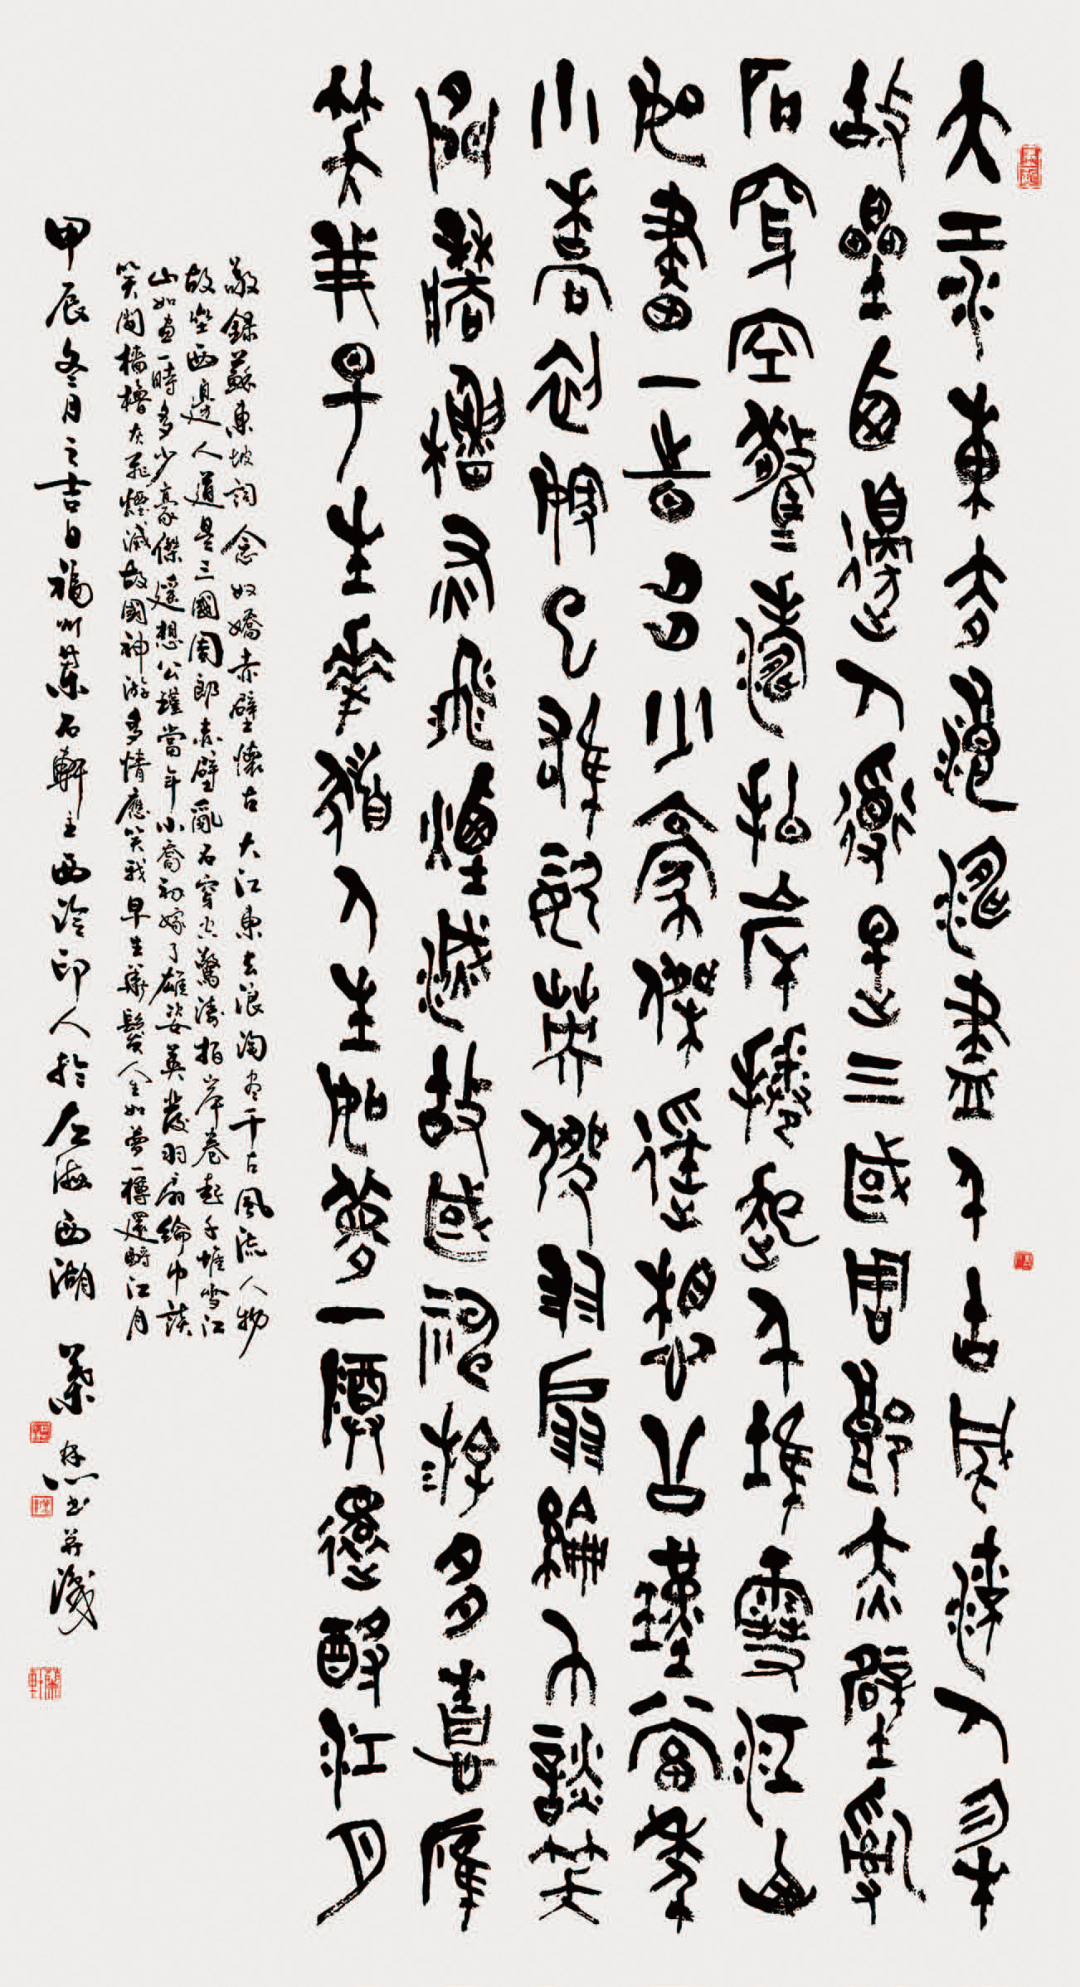 大江東去浪淘盡千古風流人物
故壘西邊人道是三國周郎赤壁亂
石穿空驚濤拍岸捲起千堆雪江山
如畫一時多少豪傑遙想公瑾當年
小喬初嫁了雄姿英發羽扇綸巾談笑
間檣櫓灰飛煙滅故國神游多情應
笑我早生華髮猶人生如夢一樽還酹江月
敬錄蘇東坡詞念奴嬌赤壁懷古大江東去浪淘盡千古風流人物
故壘西邊人道是三國周郎赤壁亂石穿空驚濤拍岸卷起千堆雪江
山如畫一時多少豪傑遙想公瑾當年小喬初嫁了雄姿英發羽扇綸巾談
笑間檣櫓灰飛煙滅故國神游多情應笑我早生華髮人生如夢一樽還酹江月
甲辰冬月之吉日福州石軒主西泠印人於左海西湖 葉書并識